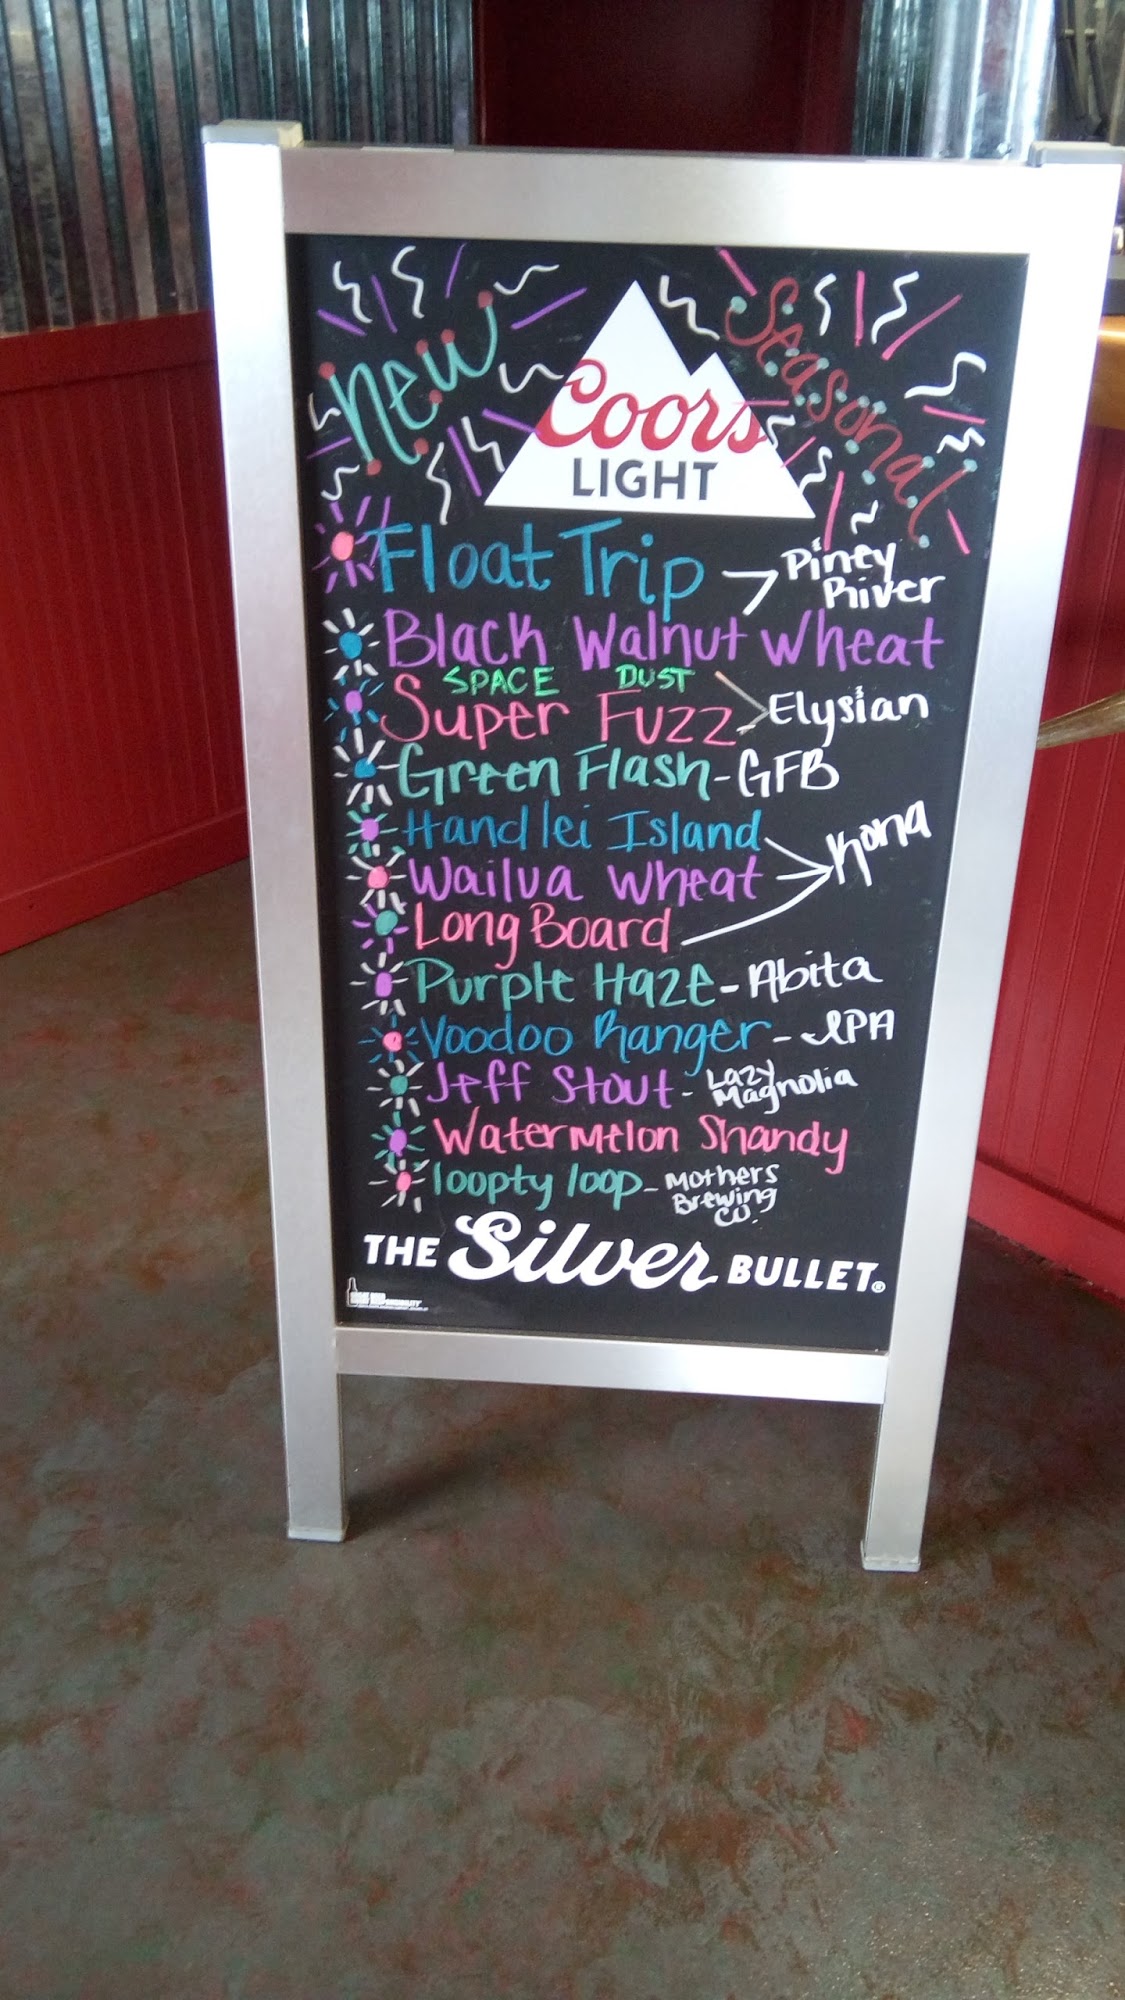 New
Seasonal
Coors
LIGHT
Float Trip
Piney
River
Black Walnut Wheat
SPACE DUST
Super Fuzz
Elysian
Green Flash - GFB
Handlei Island
Wailua Wheat
Kona
Long Board
Purple Haze - Abita
Voodoo Ranger - IPA
Jeff Stout - Lazy
Magnolia
Watermelon Shandy
loopty loop - Mothers
Brewing
Co.
THE Silver BULLET®